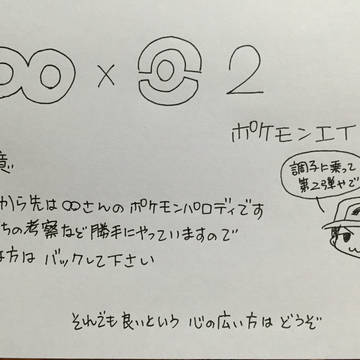 ∞ × 2
ポケモンエイ
調子に乗って
第2弾やで
意
から先は∞さんのポケモンパロディです
ちの考察など勝手にやっていますので
な方は バックして下さい
それでも良いという 心の広い方は どうぞ